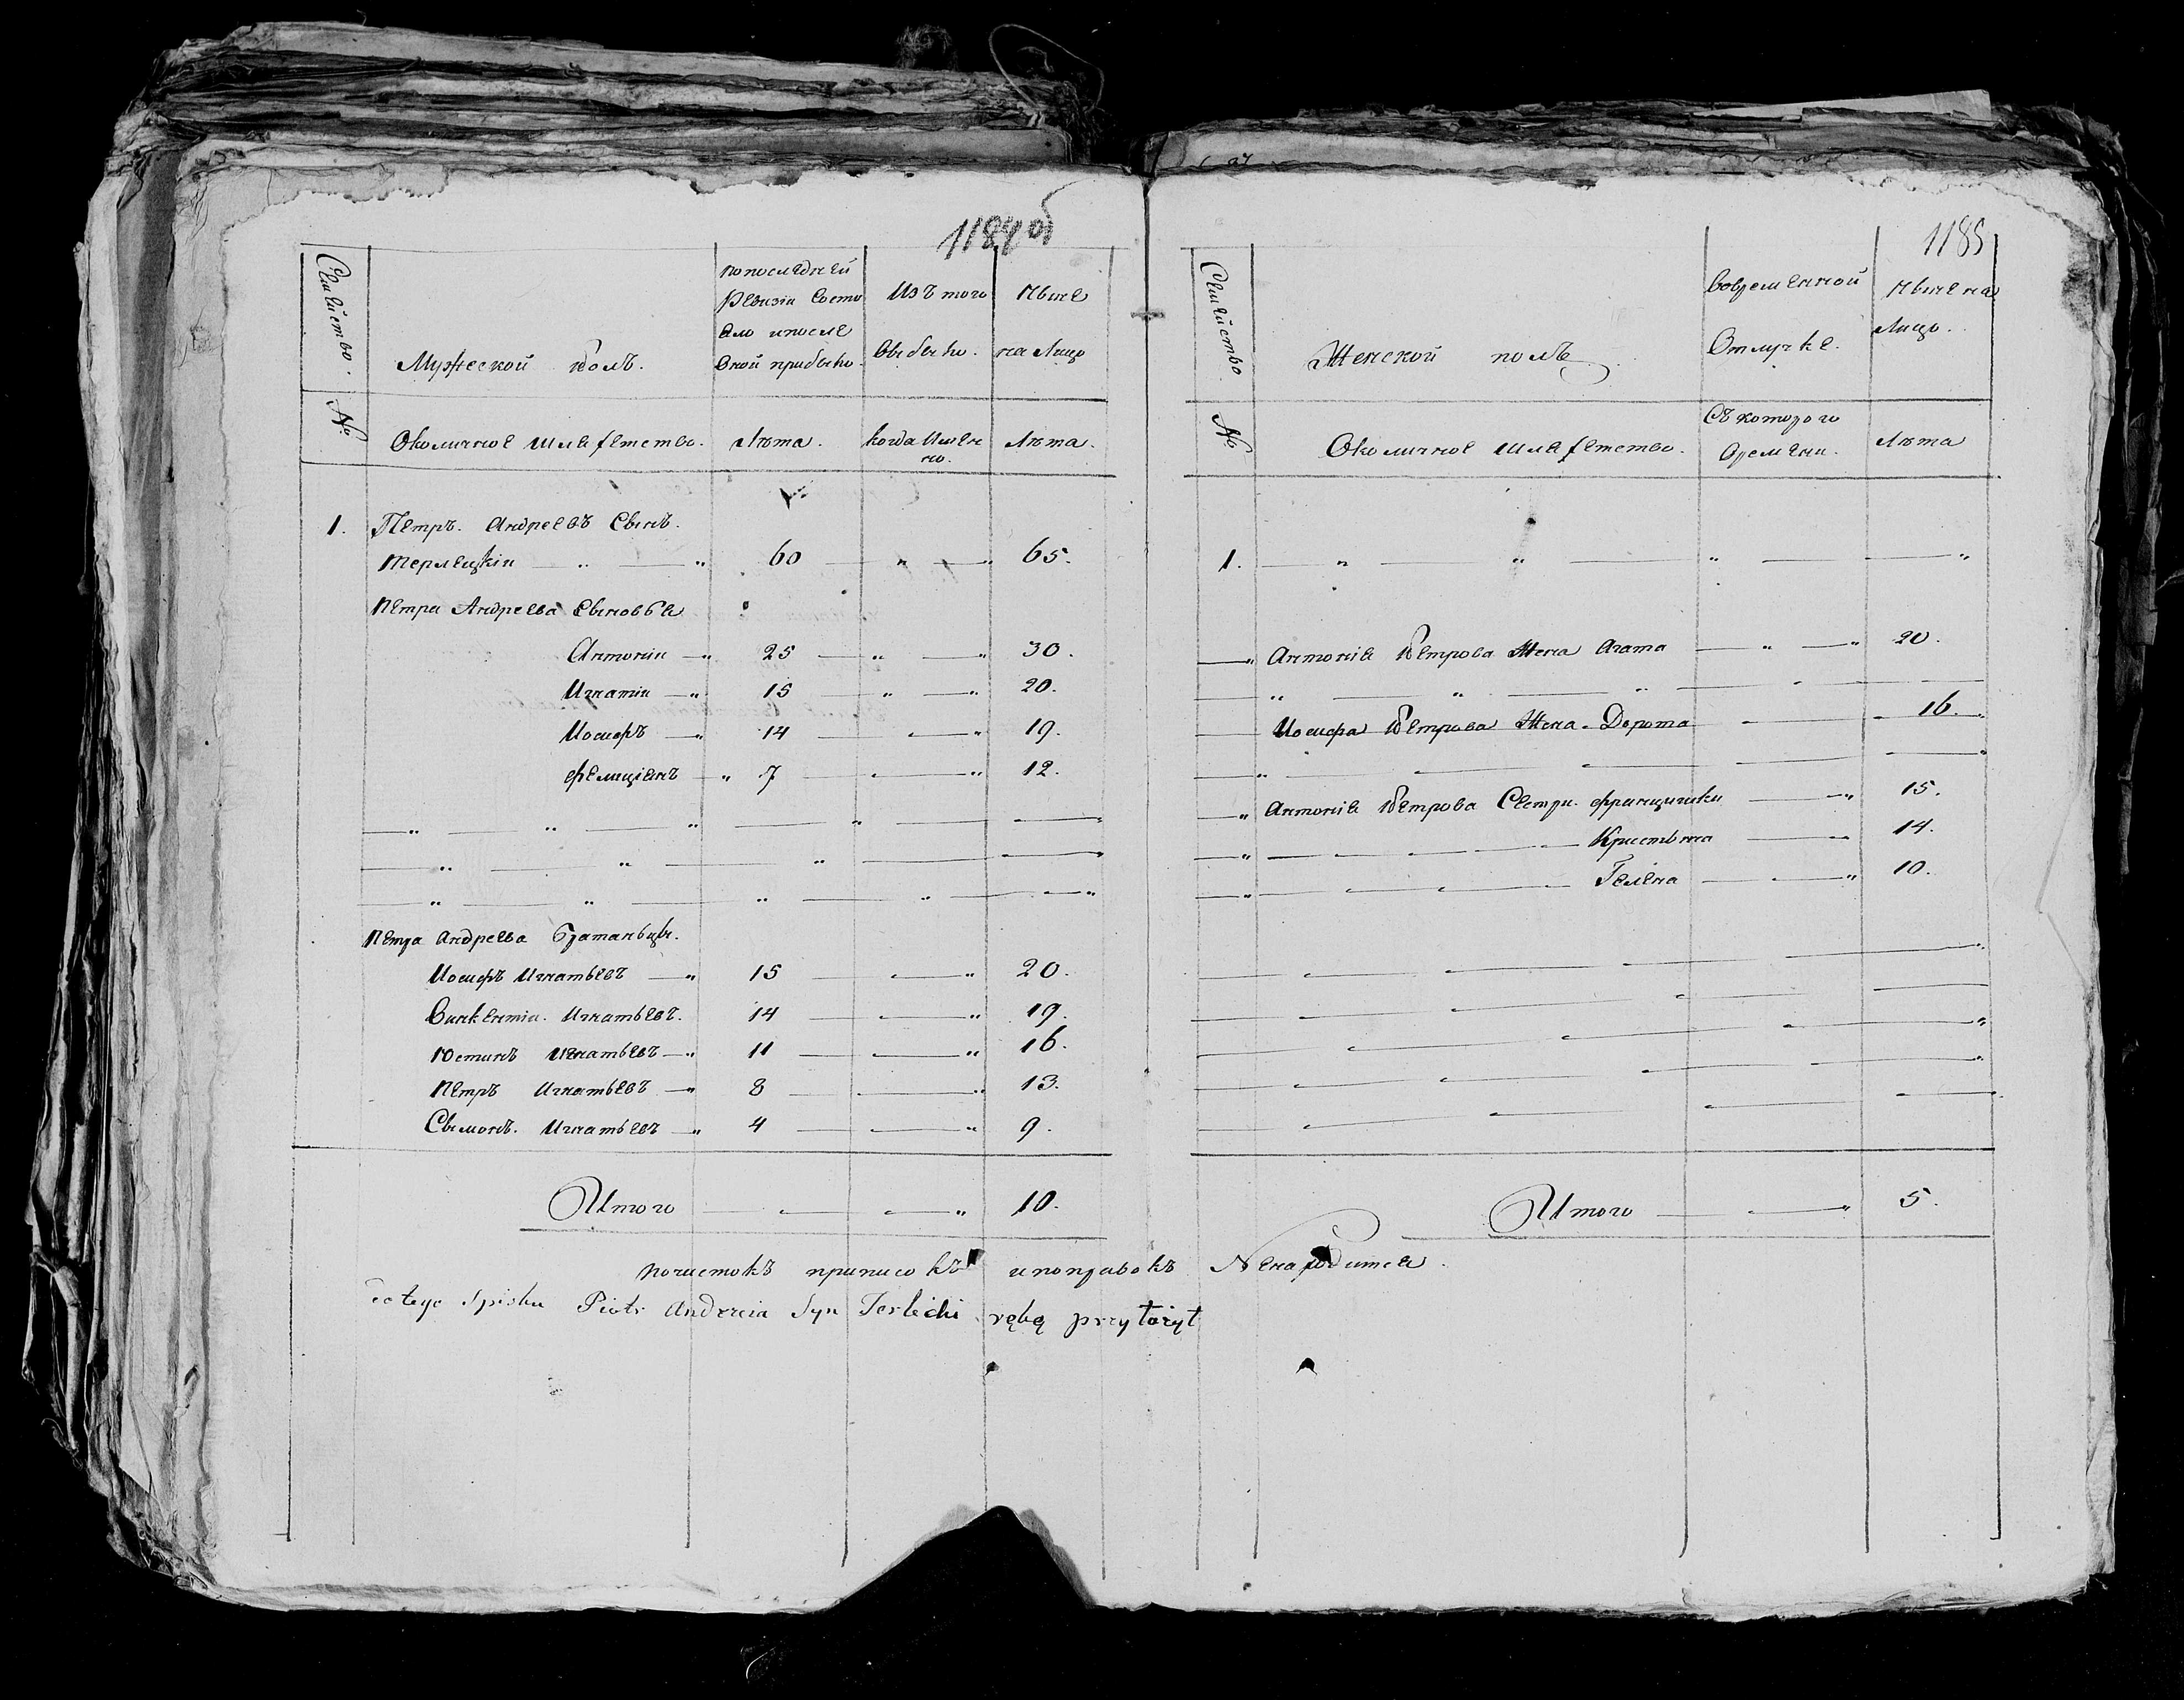 1184 об
1185
Семейство.
Мужеской полъ.
По последней
Ревизіи Состо
яло и после
оной прибыло.
Изъ того
Выбыло.
Ныне
на Лицо
№
Околичное шляхетство.
Лѣта.
когда Имен
но.
Лѣта.
1. Петръ. Андреевъ Сынъ.
Терлецкіи 60 65.
Петра Андреева Сыновья
Антоніи 25 30.
Игнатіи 15 20.
Иосифъ 14 19.
Фелиціянъ 7 12.
Петра Андреева Братаньцы.
Иосифъ Игнатьевъ 15 20.
Викентіи. Игнатьевъ. 14 19.
Юстинъ Игнатьевъ 11 16.
Петръ Игнатьевъ 8 13.
Сымонъ. Игнатьевъ 4 9.
Итого 10.
Семейство
Женской полъ
Вовременной
Отлучке.
Ныне на
Лицо.
№
Околичное шляхетство.
Съ которого
Времени.
Лѣта
1.
Антонія Петрова Жена Агата 20.
Иосифа Петрова Жена Дорота 16.
Антонія Петрова Сестры. Францишка 15.
Кристына 14.
Гелена 10.
Итого 5.
почистокъ приписокъ и поправокъ Ненаходится.
do tego Spisku Piotr Andrzeia Syn Terlecki rękę przyłożył